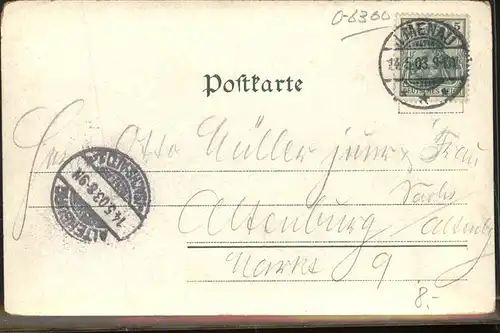 O-6300
ILMENAU
5
14.5.03. 9-10V
DEUTSCHES REICH
Postkarte
Herrn Otto Müller junr & Frau
Sachs
Altenburg Altenbg
Markt 9
ALTENBURG
14.5.03. 8-9N
8.-